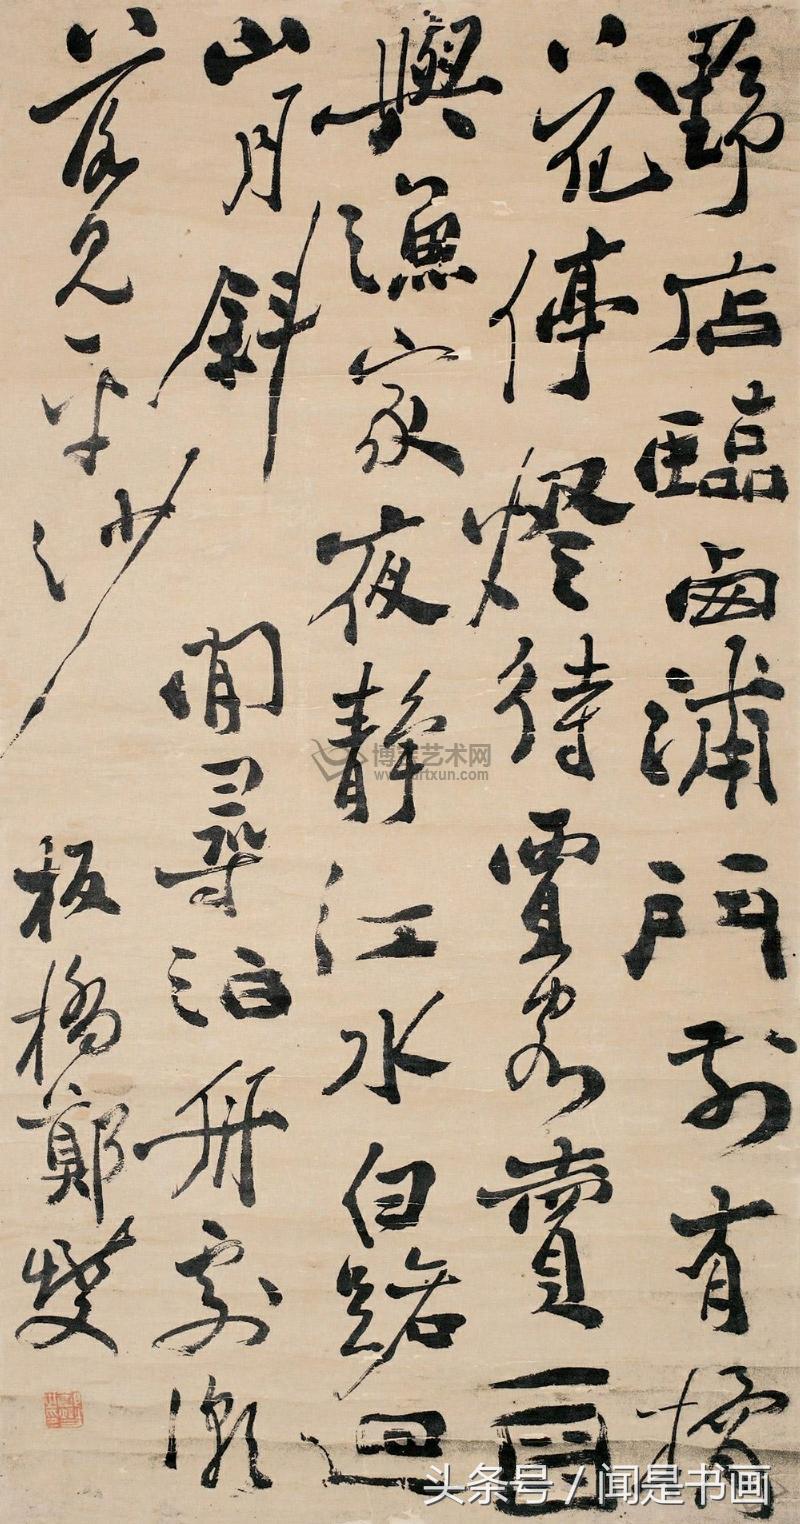 野店臨西浦門前有橘
花停燈待賈客賣酉
與漁家夜靜江水白路迴
山月斜 閒尋泊舟處潮
落見平沙 板橋鄭燮
博宝艺术网
www.artxun.com
头条号 / 闻是书画